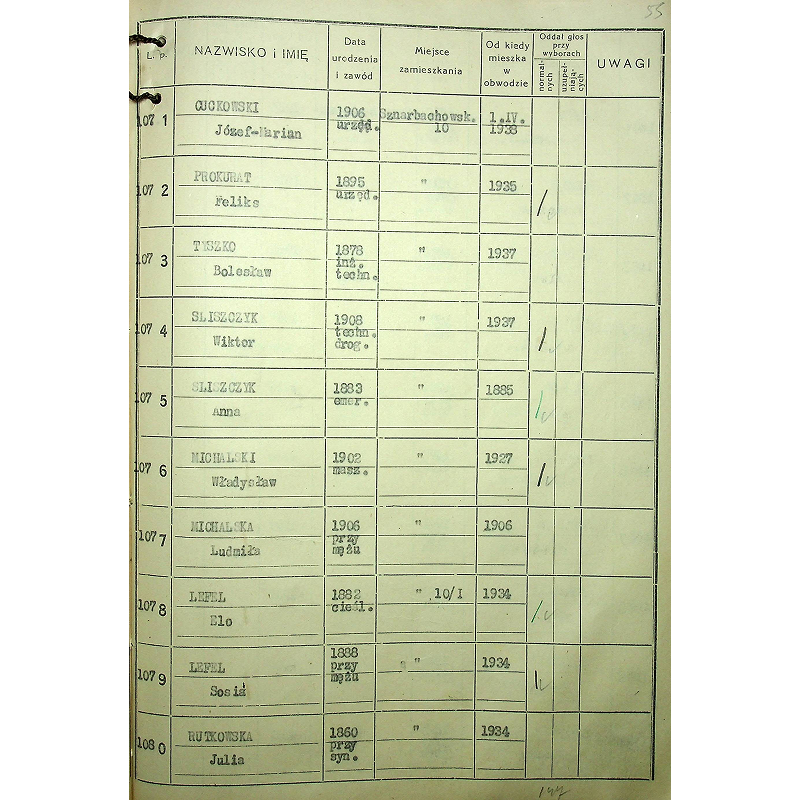 55
L. p.
NAZWISKO i IMIĘ
Data
urodzenia
i zawód
Miejsce
zamieszkania
Od kiedy
mieszka
w
obwodzie
Oddał głos
przy
wyborach
normal-
nych
uzupeł-
niają-
cych
UWAGI
107 1
CUCKOWSKI
Józef-Marian
1906
urzęd.
Sznarbachowsk.
10
1.IV.
1938
107 2
PROKURAT
Feliks
1895
urzęd.
"
1935
107 3
TYSZKO
Bolesław
1878
inż.
techn.
"
1937
107 4
SLISZCZYK
Wiktor
1908
techn.
drog.
"
1937
107 5
SLISZCZYK
Anna
1883
emer.
"
1885
107 6
MICHALSKI
Władysław
1902
masz.
"
1927
107 7
MICHALSKA
Ludmiła
1906
przy
mężu
"
1906
107 8
LEFEL
Elo
1882
cieśl.
" 10/I
1934
107 9
LEFEL
Sosia
1888
przy
mężu
"
1934
108 0
RUTKOWSKA
Julia
1860
przy
syn.
"
1934